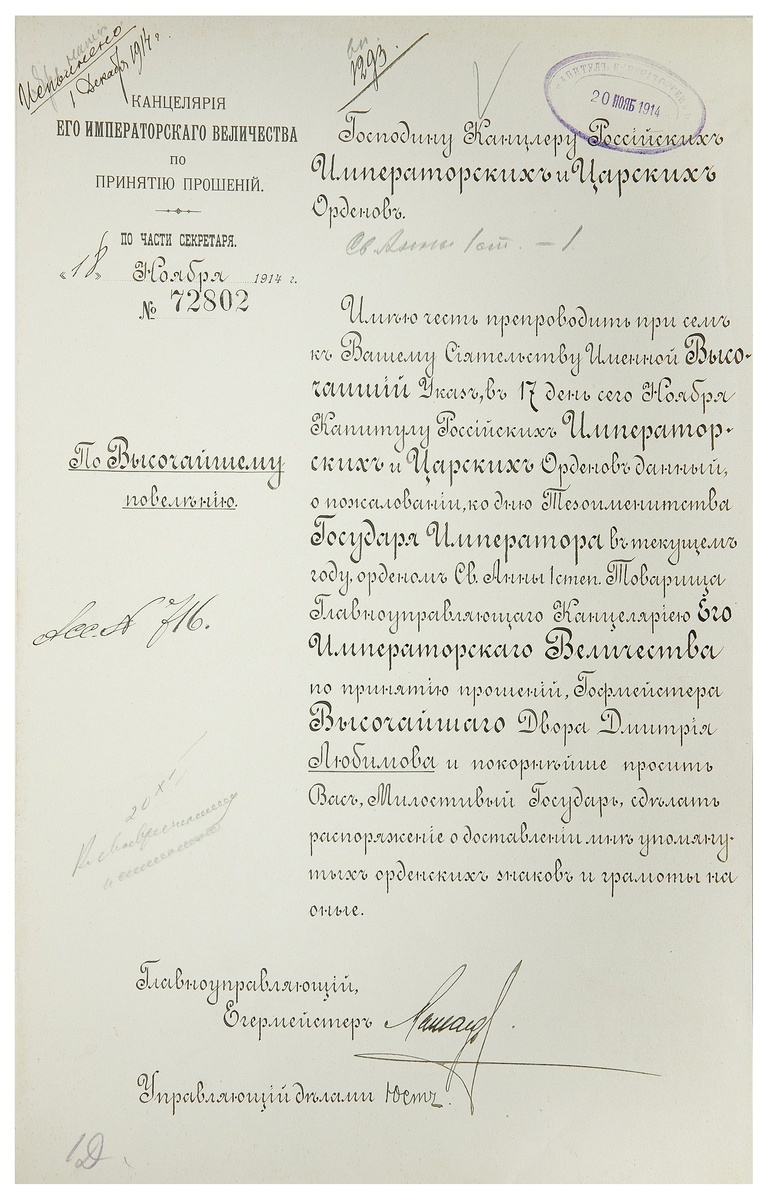 Исполнено
1 Декабр. 1914 г.
вп.
1293.
20 НОЯБ 1914
КАНЦЕЛЯРІЯ
ЕГО ИМПЕРАТОРСКАГО ВЕЛИЧЕСТВА
ПО
ПРИНЯТІЮ ПРОШЕНІЙ.
ПО ЧАСТИ СЕКРЕТАРЯ.
„18” Ноября 1914 г.
№ 72802
Господину Канцлеру Россійскихъ
Императорскихъ и Царскихъ
Орденовъ.
Св. Анны 1 ст. – 1
По Высочайшему
повелѣнію.
Асс. № 716.
20 XI
Имѣю честь препроводить при семъ
къ Вашему Сіятельству Именной Высо-
чайшій Указъ, въ 17 день сего Ноября
Капитулу Россійскихъ Император-
скихъ и Царскихъ Орденовъ данный,
о пожалованіи, ко дню Тезоименитства
Государя Императора въ текущемъ
году, орденомъ Св. Анны 1 степ. Товарища
Главноуправляющаго Канцеляріею Его
Императорскаго Величества
по принятію прошеній, Гофмейстера
Высочайшаго Двора Дмитрія
Любимова и покорнѣйше просить
Васъ, Милостивый Государь, сдѣлать
распоряженіе о доставленіи мнѣ упомяну-
тыхъ орденскихъ знаковъ и грамоты на
оные.
Главноуправляющій,
Егермейстеръ
Управляющій дѣлами Юстъ.